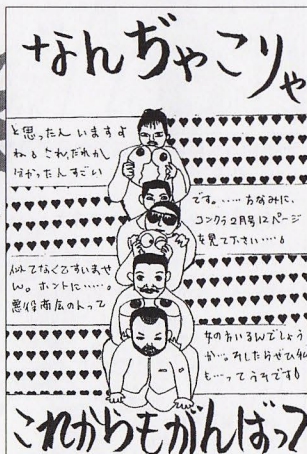 なんぢゃこりゃ
と思ったん いますよ
ねる これ、だれか
分かったん すごい
です。……ちなみに、
コンクラ2月号12ページ
を見て下さい……。
似てなくてすいませ
ん。ホントに……。
悪役商店の人って
女の方いるんでしょう
か…。わしたらぜひ私
も…ってうそです
これからもがんばって